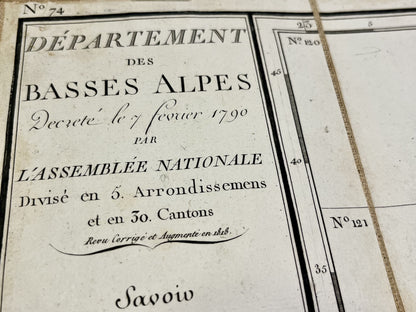 Nº 74
DÉPARTEMENT
DES
BASSES ALPES
Decreté le 7 février 1790
PAR
L'ASSEMBLÉE NATIONALE
Divisé en 5. Arrondissemens
et en 30. Cantons
Revu Corrigé et Augmenté en 1818.
Savoio
25
5
Nº 120
45
40
Nº 121
35